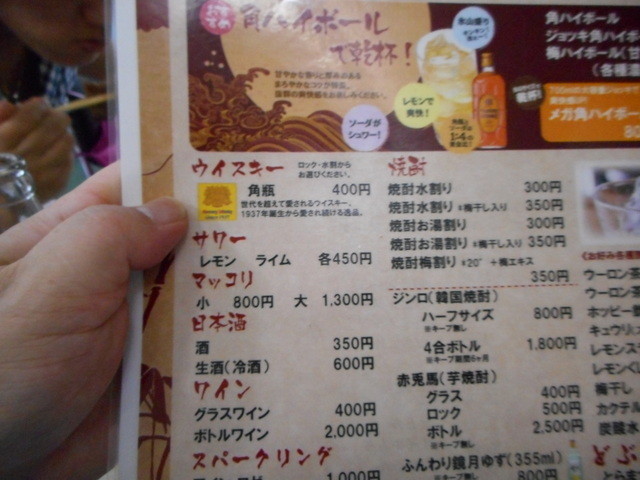 おすすめ
角ハイボール
で乾杯!
甘やかな香りと厚みのある
まろやかなコクが特長。
氷山盛り
レモンで
爽快!
ソーダが
シュワー!
角瓶と
ソーダは
1:4の
乾杯!
角ハイボール
ジョッキ角ハイボ
梅ハイボール(甘
(各種
メガ角ハイボー
ウイスキー
ロック・水割から
お選びください。
角瓶 400円
世代を超えて愛されるウイスキー。
1937年誕生から愛され続ける逸品。
サワー
レモン ライム 各450円
マッコリ
小 800円 大 1,300円
日本酒
酒 350円
生酒(冷酒) 600円
ワイン
グラスワイン 400円
ボトルワイン 2,000円
スパークリング
1,000円
焼酎
焼酎水割り 300円
焼酎水割り ※梅干し入り 350円
焼酎お湯割り 300円
焼酎お湯割り ※梅干し入り 350円
焼酎梅割り ※20° +梅エキス
350円
ジンロ(韓国焼酎)
ハーフサイズ 800円
※キープ無し
4合ボトル 1,800円
※キープ期間6ヶ月
赤兎馬(芋焼酎)
グラス 400円
ロック 500円
ボトル 2,500円
※キープ無し
ふんわり鏡月ゆず(355ml)
※キープ無し 800円
《お好み各種
ウーロン茶
ウーロン茶
ホッピー
キュウリ
レモンス
レモンし
梅干し
カクテル
炭酸水
どぶ